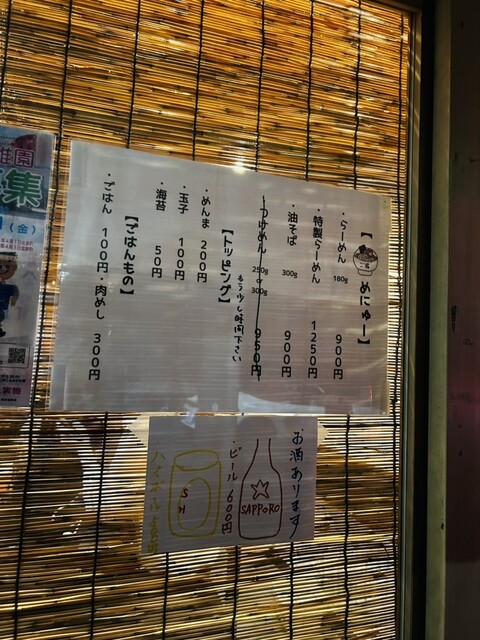 【めにゅー】
・らーめん 180g 900円
・特製らーめん 1250円
・油そば 300g 900円
・つけめん 250g or 300g 950円
もう少し時間下さい
【トッピング】
・めんま 200円
・玉子 100円
・海苔 50円
【ごはんもの】
・ごはん 100円・肉めし 300円
お酒あります
SAPPORO
・ビール 600円
S
H
ハイボール
集
(金)